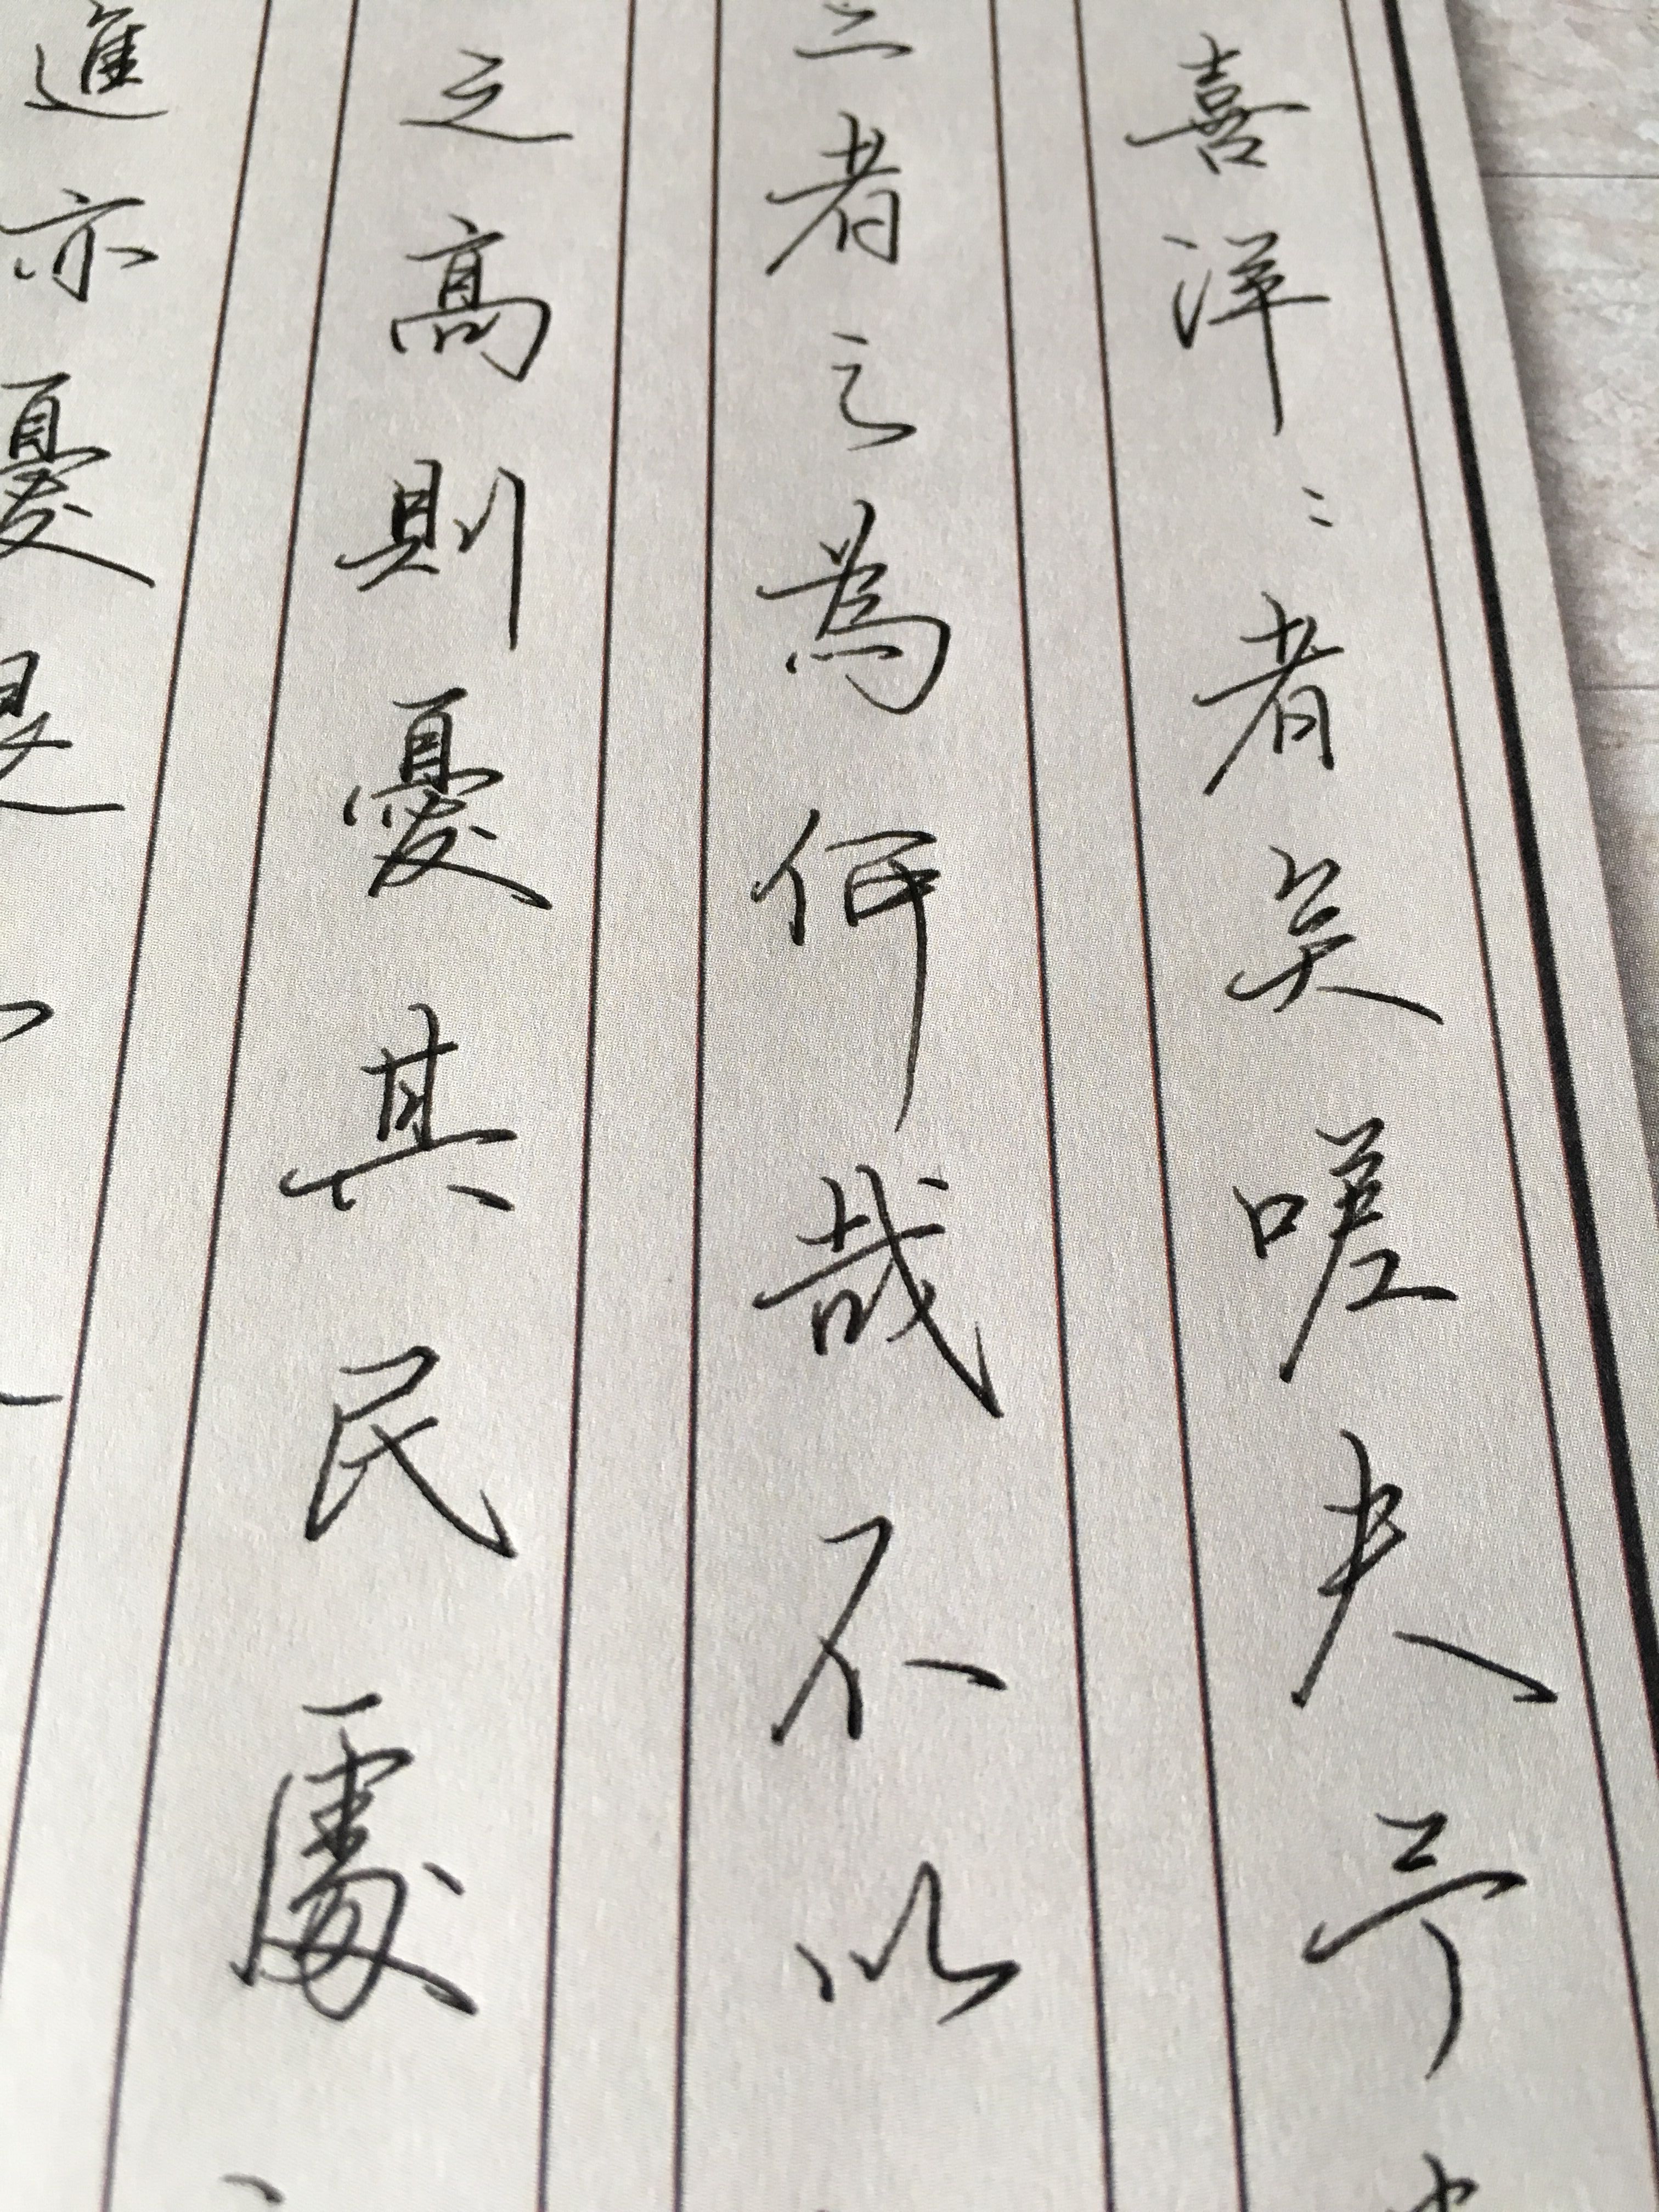 喜洋〻者矣嗟夫予
二者之為何哉不以
之高則憂其民處
進亦憂退